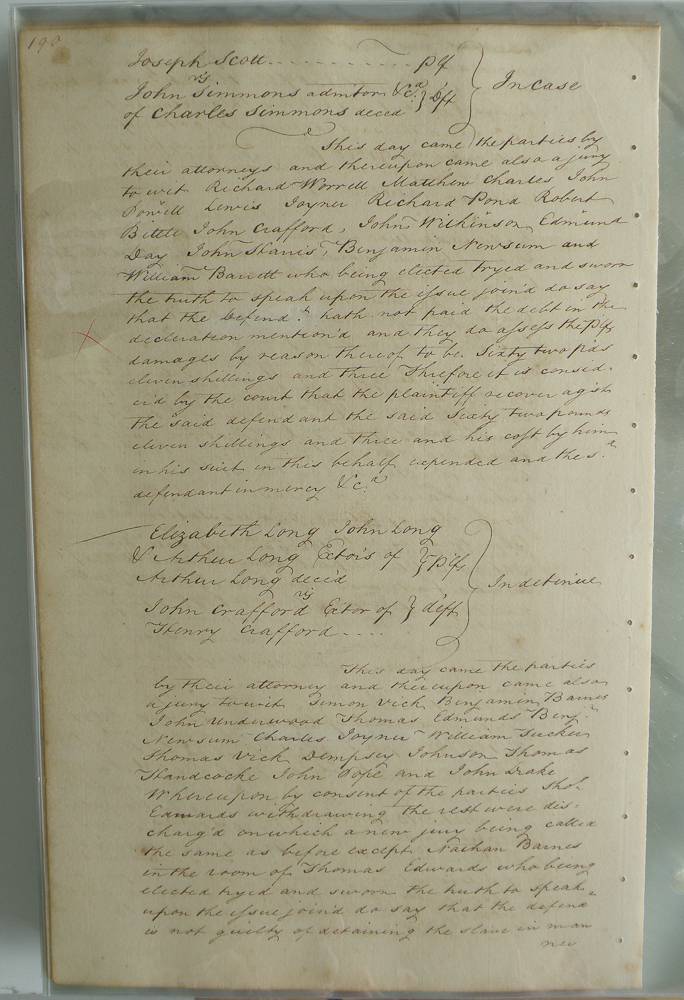 190
Joseph Scott . . . . . . . . . . . . . . plf
vs
John Simmons admitor &c.a } Deft } In case
of Charles Simmons decd
This day came the parties by
their attorneys and thereupon came also a jury
to wit Richard Worrell Matthew Charles John
Powell Lewis Joyner Richard Pond Robert
Bittle John Crafford, John Wilkinson, Edmund
Day John Harris, Benjamin Newsum and
William Barrett who being elected tryed and sworn
the truth to speak upon the issue join'd do say
that the Defend.t hath not paid the debt in the
declaration mention'd and they do assess the plfs
damages by reason thereof to be Sixty two pds
eleven shillings and three Threfore it is consid-
er'd by the court that the plaintiff recover agst
the said defendant the said Sixty two pounds
eleven shillings and three and his cost by him
in his suit in this behalf expended and the s.d
defendant in mercy &c.a
Elizabeth Long John Long
& Arthur Long Exto'rs of } plfs
Arthur Long dec'd } In detinue
vs
John Crafford Extor of } deft
Henry Crafford . . . .
This day came the parties
by their attorney and thereupon came also
a jury to wit Simon Vick Benjamin Barnes
John Underwood Thomas Edmunds Benj.n
Newsum Charles Joyner William Tucker
Thomas Vick Dempsey Johnson Thomas
Handcocke John Pope and John Drake
Whereupon by consent of the parties Tho.s
Edmunds withdrawing the rest were dis-
charg'd on which a new jury being called
the same as before except Nathan Barnes
in the room of Thomas Edwards who being
elected tryed and sworn the truth to speak
upon the issue join'd do say that the defend
is not guilty of detaining the slave in man
ner